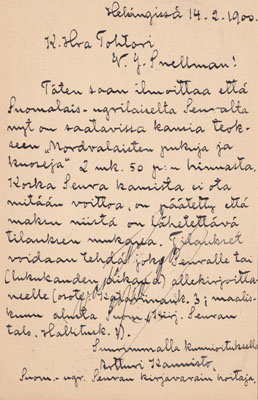 Helsingissä 14.2.1900.
K. Hra Tohtori
W. J. Snellman!
Täten saan ilmoittaa että
Suomalais-ugrilaiselta Seuralta
nyt on saatavissa kansia teok-
seen „Mordvalaisten pukuja ja
kuoseja" 2 mk. 50 p:n hinnasta.
Koska Seura kansista ei ota
mitään voittoa, on päätetty että
maksu niistä on lähetettävä
tilauksen mukana. Tilaukset
voidaan tehdä joko Seuralle tai
(lukukauden aikana) allekirjoitta-
neelle (osote: Katajanank. 3; maalis-
kuun alusta Suom. Kirj. Seuran
talo, Hallitusk. 1).
Suurimmalla kunnioituksella
Artturi Kannisto,
Suom.-ugr. Seuran kirjavarain hoitaja.